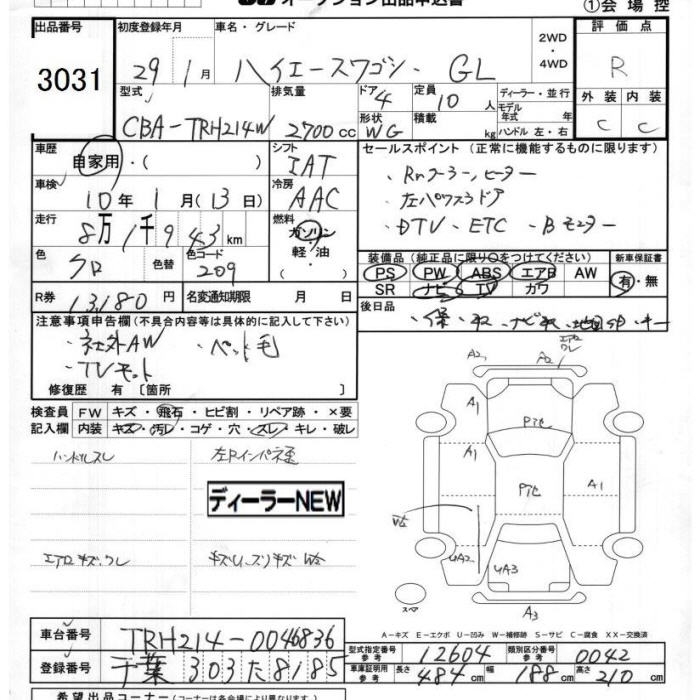 オークション出品申込書
①会場控
出品番号
3031
初度登録年月
29年1月
車名・グレード
ハイエースワゴン・GL
2WD
・
4WD
評価点
R
外装 内装
C C
型式
CBA-TRH214W
排気量
2700cc
ドア
4
形状
WG
定員
10人
積載
kg
ディーラー・並行
モデル年式 年
ハンドル 左・右
車歴
自家用・( )
シフト
IAT
車検
10年1月(13日)
冷房
AAC
走行
8万1千943km
燃料
ガソリン
軽・油
・( )
色
クロ
色替
色コード
209
R券
13180円
名変通知期限 月 日
セールスポイント(正常に機能するものに限ります)
・Rrクーラー、ヒーター
・左パワスラドア
・DTV・ETC・Bモニター
装備品(純正品に限り○をつけてください)
PS PW ABS エアB AW
SR ナビ TV カワ
新車保証書
有・無
後日品
注意事項申告欄(不具合内容等は具体的に記入して下さい)
・社外AW ・ペット毛
・TVキット
修復歴 有[箇所 ]
検査員記入欄
FW キズ・飛石・ヒビ割・リペア跡・×要
内装 キズ・汚レ・コゲ・穴・スレ・キレ・破レ
ハンドルスレ
左Rインパネ歪
ディーラーNEW
エアロキズ、ワレ
A2 A2 エアロワレ
A1 Pアヒ
A1 Pアヒ A1
UA2 UA3
スペア
A3
A-キズ E-エクボ U-凹み W-補修跡 S-サビ C-腐食 XX-交換済
車台番号
TRH214-0046836
登録番号
千葉303た8185
型式指定番号 参考
12604
類別区分番号 参考
0042
車庫証明用 参考
長さ 484cm 幅 188cm 高さ 210cm
希望出品コーナー(コーナーは各会場により異なります)